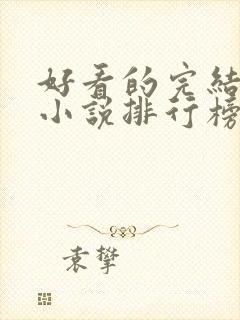 好看的完結
小說排行榜
袁攀